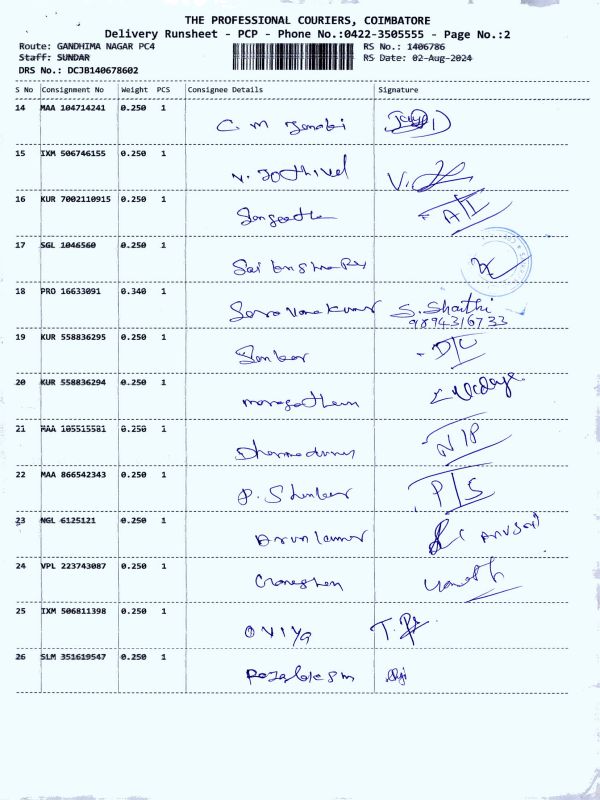 THE PROFESSIONAL COURIERS, COIMBATORE
Delivery Runsheet - PCP - Phone No.:0422-3505555 - Page No.:2
Route: GANDHIMA NAGAR PC4 RS No.: 1406786
Staff: SUNDAR RS Date: 02-Aug-2024
DRS No.: DCJB140678602
S No Consignment No Weight PCS Consignee Details Signature
14 MAA 104714241 0.250 1
C. M
15 IXM 506746155 0.250 1
N. Jothivel V.
16 KUR 7002110915 0.250 1
Sangeetha
17 SGL 1046560 0.250 1
Sai
18 PRO 16633091 0.340 1
Saravanakumar S. Shanthi
9894316733
19 KUR 558836295 0.250 1
Sankar D/C
20 KUR 558836294 0.250 1
maragatham
21 MAA 105515581 0.250 1
N/P
22 MAA 866542343 0.250 1
P. P/S
23 NGL 6125121 0.250 1
Arunkumar
24 VPL 223743087 0.250 1
25 IXM 506811398 0.250 1
OVIYA T.
26 SLM 351619547 0.250 1